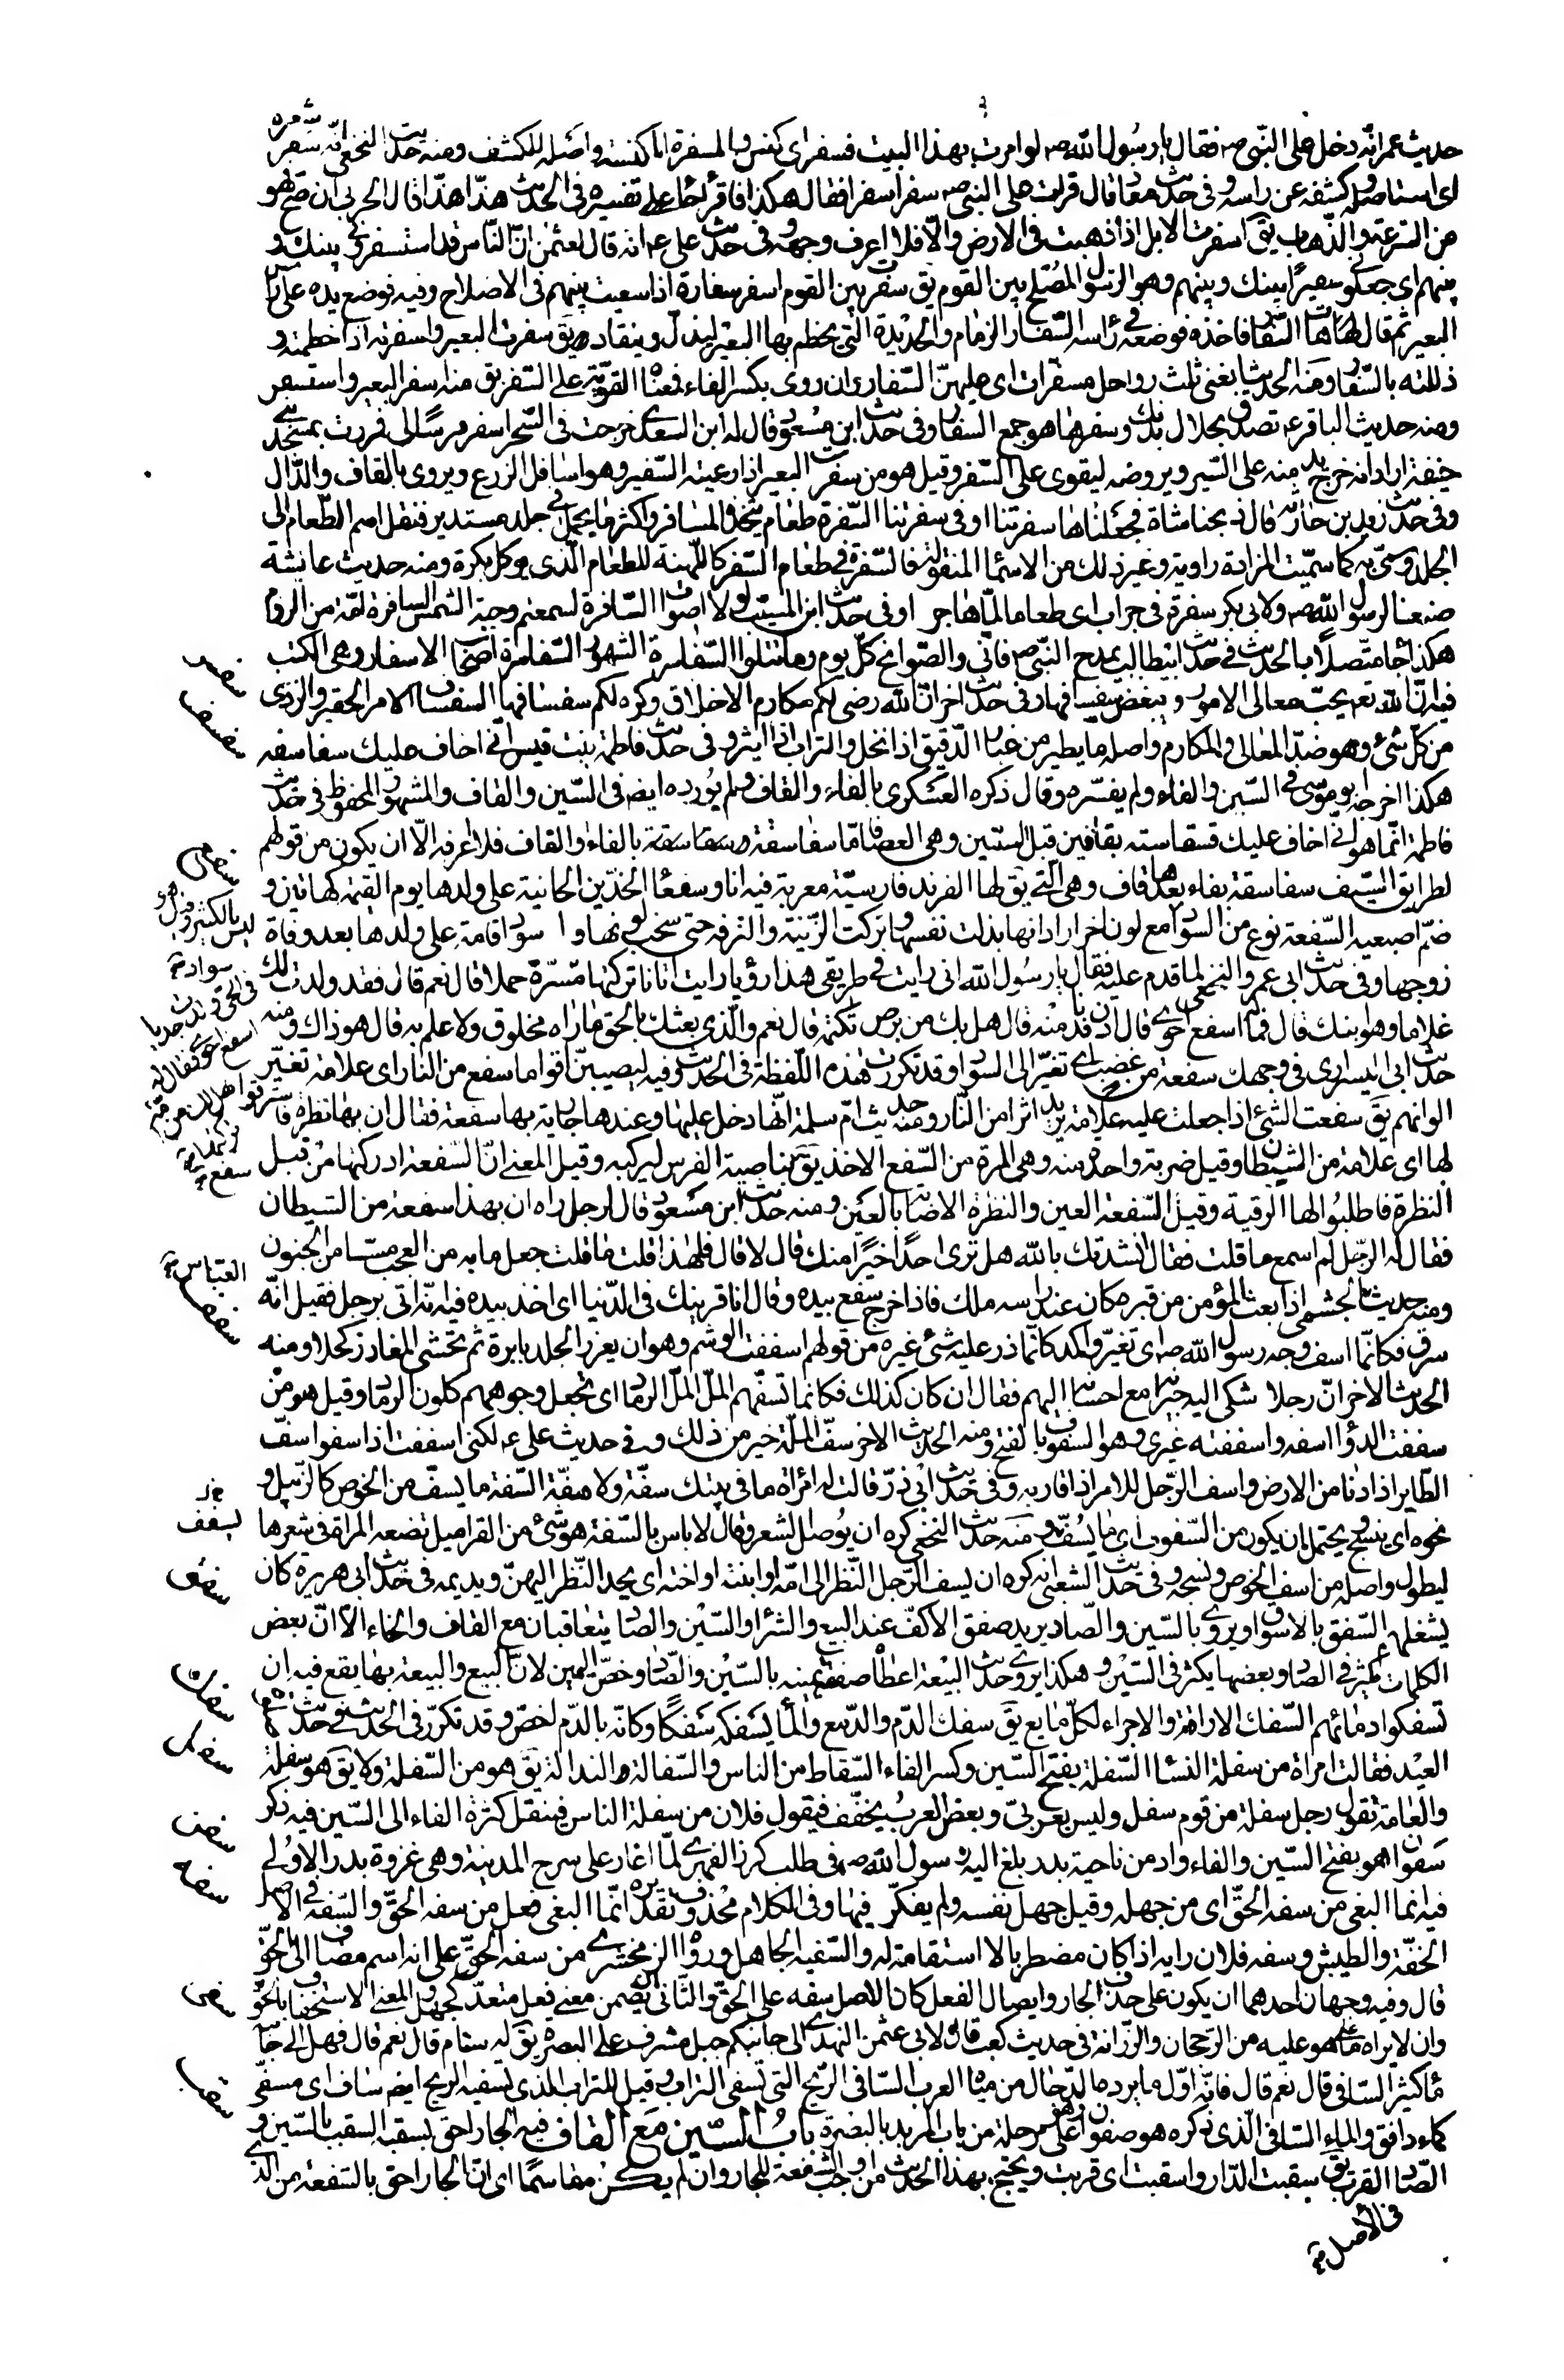 حديث عمر انّه دخل على النّبى ص فقال يا رسول الله ص لو امرت بهذا البيت فسفر اى كنس والمسفرة المكنسة واصله للكشف ومنه حديث النخعى انّه سفر شعره
اى استاصله وكشفه عن راسه وفى حديث معاذ قال قرات على النبى ص سفرا سفرا فقال هكذا فاقرأ جاء على تفسيره فى الحديث هذّا هذّا قال الحربى ان صحّ فهو
من السّرعة والذّهاب يق اسفرت الابل اذا ذهبت فى الارض والّا فلا اعرف وجهه وفى حديث على ع انه قال لعثمن انّ النّاس قد استسفرونى بينك و
بينهم اى جعلونى سفيرًا بينك وبينهم وهو الرّسول المُصلح بين القوم يق سفرت بين القوم اسفر سفارة اذا سعيت بينهم فى الاصلاح وفيه فوضع يده على راس
البعير ثم قال هات السّفار فاخذه فوضعه فى راسه السّفار الزمام والحديدة التى يخطم بها البعير ليذلّ وينقاد ويق سفرت البعير واسفرته اذا خطمته و
ذللته بالسّفار ومنه الحديث ابغنى ثلث رواحل مسفرات اى عليهنّ السّفار وان روى بكسر الفاء فمعناه القويّة على السّفر يق منه اسفر البعير واستسفر
ومنه حديث الباقر ع تصدق بجلال بدنك وسفرها هو جمع السفار وفى حديث ابن مسعود قال له ابن السعدى خرجت فى السّحر اسفر فرسًا لى فمررت بمسجد بنى
حنيفة اراد انه خرج يدمنه على السّير ويروضه ليقوى على السّفر وقيل هو من سفرت البعير اذا رعيته السّفير وهو اسافل الزرع ويروى بالقاف والدّال
وفى حديث زيد بن حارثة قال ذبحنا شاة فجعلناها سفرتنا او فى سفرتنا السّفرة طعام يتخذه المسافر واكثر ما يحمل فى جلد مستدير فنقل اسم الطّعام الى
الجلد وسمّى به كما سمّيت المزادة راوية وغير ذلك من الاسماء المنقولة فالسّفرة فى طعام السّفر كاللّهنة للطعام الّذى يوكل بكرة ومنه حديث عايشة
صنعنا لرسول الله ص ولابى بكر سفرة فى جراب اى طعاما لمّا هاجر او فى حديث ابن المسيّب لولا اصوات السّافرة لسمعتم وجبة الشمس السافرة امّة من الروم
هكذا جاء متّصلًا بالحديث فى حديث ابى طالب يمدح النّبى ص فانّى والضّوابح كلّ يوم وما تتلوا السّفاسرة الشهود السّفاسرة اصحاب الاسفار وهى الكتب
فيه انّ الله تع يحبّ معالى الامور ويبغض سفسافها وفى حديث اخر انّ الله رضى لكم مكارم الاخلاق وكره لكم سفسافها السفساف الامر الحقير والرّدى
من كلّ شىء وهو ضدّ المعالى والمكارم واصله ما يطير من غبار الدّقيق اذا نخل والتراب اذا اثير وفى حديث فاطمة بنت قيس انّى اخاف عليك سفاسفه
هكذا اخرجه ابو موسى فى السّين والفاء ولم يفسّره وقال ذكره العسكرى بالفاء والقاف ولم يُورده ايضا فى السّين والقاف والمشهور المحفوظ فى حديث
فاطمة انّما هو انّى اخاف عليك قسقاسته بقافين قبل السّينين وهى العصا فامّا سفاسفة وسفاسقة بالفاء والقاف فلا اعرفه الّا ان يكون من قولهم
لطرايق السّيف سفاسقة بفاء بعدها قاف وهى الّتى يق لها الفرند فارسيّة معربة فيه انا وسفعاء الخدّين الحانية على ولدها يوم القيمة كهاتين و
ضمّ اصبعيه السّفعة نوع من السّواد مع لون اخر اراد انها بذلت نفسها وتركت الزّينة والترفه حتى شحب لونها واسودّ اقامة على ولدها بعد وفاة
زوجها وفى حديث ابى عمرو النخعى لما قدم عليه فقال يا رسول الله انى رايت فى طريقى هذا رؤيا رايت اتانا تركتها مسّرة حملا قال نعم قال فقد ولدت لك
غلاما وهو ابنك قال فما له اسفع احوى قال ادن فدنا منه قال هل بك من برص تكتمه قال نعم والّذى بعثك بالحق ما راه مخلوق ولا علم به قال هو ذاك ومنه
حديث ابى اليسر ارى فى وجهك سفعة من غضب اى تغيّرا الى السّواد وقد تكررت هذه اللّفظة فى الحديث وفيه ليصيبنّ اقواما سفع من النّار اى علامة تغيّر
الوانهم يق سفعت الشىء اذا جعلت عليه علامة يريد اثرا من النّار ومنه حديث امّ سلمة انّها دخل عليها وعندها جارية بها سفعة فقال ان بها نظرة فاسترقوا
لها اى علامة من الشيطان وقيل ضربة واحدة منه وهى المرة من السّفع الاخذ يق سفع بناصية الفرس ليركبه وقيل المعنى انّ السّفعة ادركتها من قبل
النظرة فاطلبُوا لها الرقية وقيل السّفعة العين والنظرة الاصابة بالعين ومنه حديث ابن مسعود قال لرجل راه ان بهذا سفعة من الشيطان
فقال له الرّجل لم اسمع ما قلت فقال انشدتك بالله هل ترى احدًا خيرًا منك قال لا قال فلهذا قلت ما قلت جعل ما به من العجب مسّا من الجنون
ومنه حديث الجشمى اذا بعث المؤمن من قبره كان عند راسه ملك فاذا خرج سفع بيده وقال انا قرينك فى الدّنيا اى اخذ بيده فيه انّه اتى برجل فقيل انّه
سرق فكانّما اسفّ وجه رسول الله ص اى تغيّر واكمد كانّما ذر عليه شىء غيره من قولهم اسففت الوشم وهو ان يغرز الجلد بابرة ثم تحشى المغارز كحلا ومنه
الحديث الاخر انّ رجلا شكى اليه جيرانه مع احسانه اليهم فقال ان كان كذلك فكانما تسفّهم الملّ الملّ الرماد اى تجعل وجوههم كلون الرماد وقيل هو من
سففت الدواء اسفه واسففته غيرى وهو السفوف بالفتح ومنه الحديث الاخر سفّ الملّة خير من ذلك وفى حديث على ع لكنى اسففت اذ اسفوا اسفّ
الطّاير اذا دنا من الارض واسف الرّجل للامر اذا قاربه وفى حديث ابى ذرّ قالت له امرأة ما فى بيتك سفّة ولا هفّة السّفة ما يسفّ من الخوص كالزّبيل و
نحوه اى ينسج ويحتمل ان يكون من السّفوف اى ما يُسفّ ومنه حديث النخعى كره ان يُوصل الشعر وقال لا باس بالسّفة هو شىء من القراميل تضعه المراة فى شعرها
ليطول واصله من اسف الخوص ونسجه وفى حديث الشعبى انه كره ان يسف الرّجل النّظر الى امّه او ابنته او اخته اى يحد النّظر اليهنّ ويديمه فى حديث ابى هريرة كان
يشغلهم السّفق بالاسواق ويروى بالسّين والصّاد يريد صفق الاكفّ عند البيع والشراء والسّين والصّاد يتعاقبان مع القاف والخاء الّا انّ بعض
الكلمات يكثر فى الصّاد وبعضها يكثر فى السّين وهكذا يروى حديث البيعة اعطاه صفقة يمينه بالسّين والصّاد وخصّ اليمين لانّ البيع والبيعة بها يقع فيه ان
تسفكوا دمائهم السّفك الاراقة والاجراء لكلّ مايع يق سفك الدّم والدّمع والماء يسفكه سفكًا وكانّه بالدّم اخصّ وقد تكرّر فى الحديث فى حديث صلوة
العيد فقالت امراة من سفلة النساء السّفلة بفتح السّين وكسر الفاء السّقاط من الناس والسّفالة والنذالة يق هو من السّفلة ولا يق هو سفلة
والعامة تقول رجل سفلة من قوم سفل وليس بعربىّ وبعض العرب يخفّف فيقول فلان من سفلة الناس فينقل كثرة الفاء الى السّين فيه ذكر
سَفوان هو بفتح السّين والفاء واد من ناحية بدر بلغ اليه رسول الله ص فى طلب كرز الفهرى لمّا اغار على سرح المدينة وهى غزوة بدر الاولى
فيه انما البغى من سفه الحقّ اى من جهله وقيل جهل نفسه ولم يفكّر فيها وفى الكلام محذوف تقديره انّما البغى فعل من سفه الحقّ والسّفه فى الاصل
الخفّة والطيش وسفه فلان رايه اذا كان مضطربا لا استقامة له والسّفيه الجاهل ورواه الزمخشرى من سفه الحقّ على انه اسم مضاف الى الحقّ
قال وفيه وجهان احدهما ان يكون على حذف الجار وايصال الفعل كان الاصل سفه على الحقّ والثّانى ان يضمن معنى فعل متعدّ كجهل والمعنى الاستخفاف بالحقّ
وان لا يراه على ما هو عليه من الرّجحان والرّزانة فى حديث كعب قال لابى عثمن النهدى الى جانبكم جبل مشرف على البصرة يق له سنام قال نعم قال فهل الى جانبه
ماء كثير السّافى قال نعم قال فانّه اوّل ماء يرده الدّجّال من مياه العرب السّافى الرّيح التى تسفى التراب وقيل للتراب الّذى تسفيه الريح ايضا ساف اى مسفىّ
كماء دافق والماء السّافى الّذى ذكره هو صفوان وهو على مرحلة من باب المربد بالبصرة باب السّين مع القاف فيه الجار احق بسقبه السقب بالسّين و
الصّاد القرب يق سقبت الدّار واسقبت اى قربت ويحتج بهذا الحديث من اوجب الشفعة للجار وان لم يكن مقاسمًا اى انّ الجار احق بالشفعة من الّذى
سفسر
سفسف
سفع
سفف
سفق
سفك
سفل
سفن
سفه
سفى
سقب